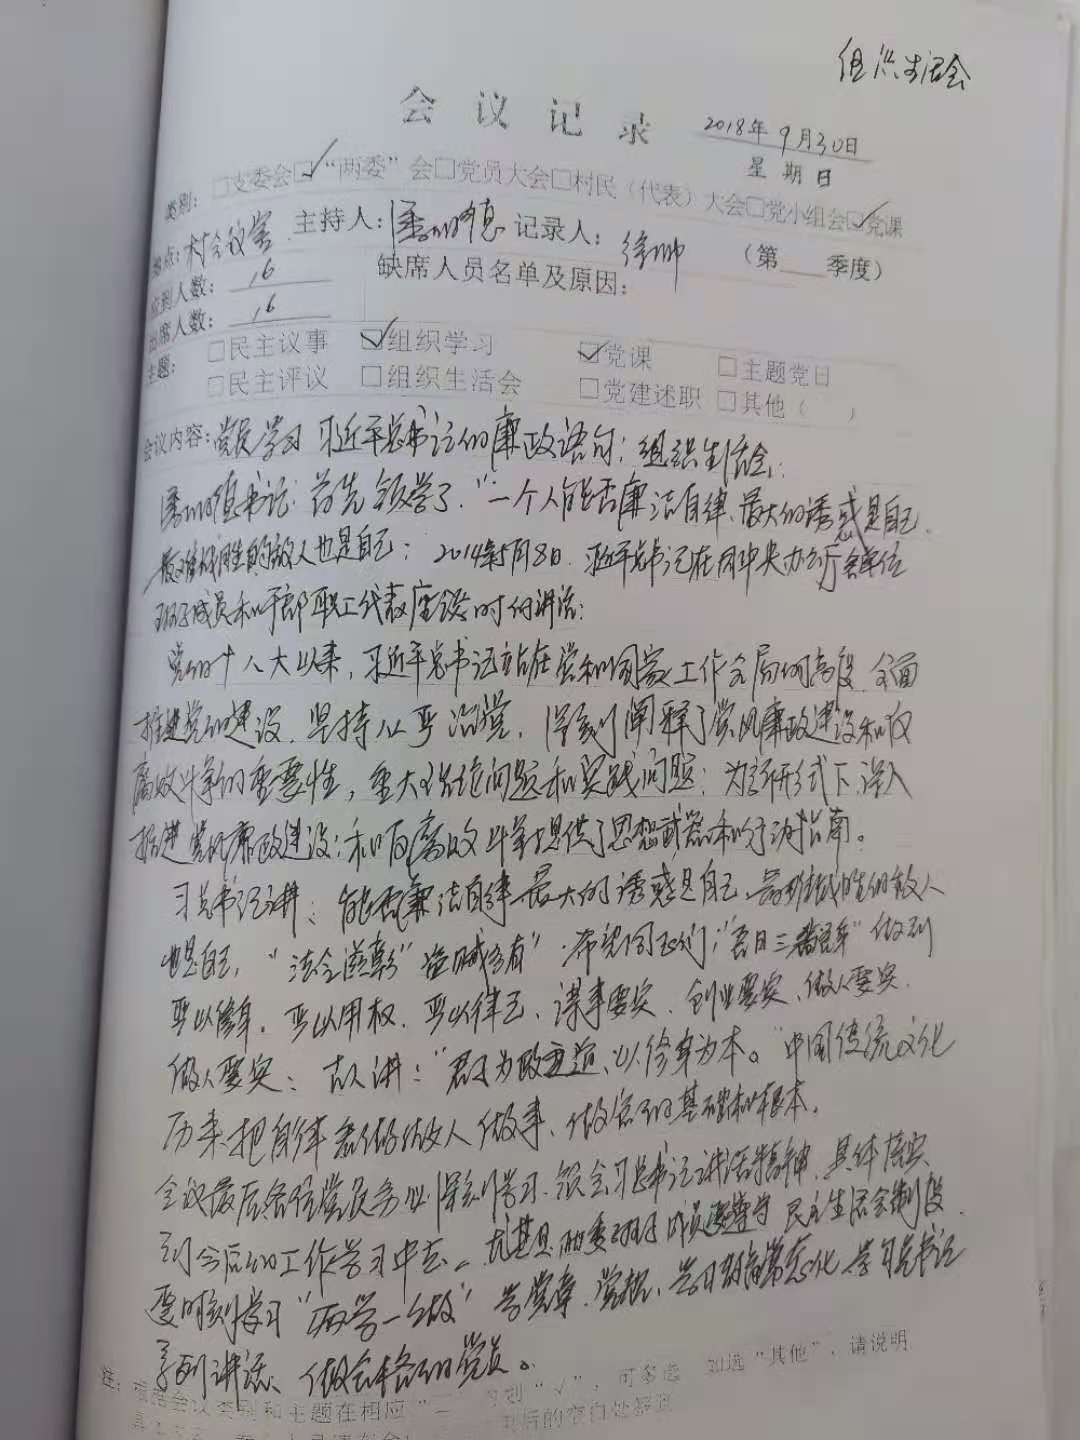 组织生活会
会议记录
2018年9月30日
星期日
类别：□支委会☑“两委”会□党员大会□村民（代表）大会□党小组会☑党课
地点：村会议室 主持人：潘明德 记录人：徐帅 （第 季度）
应到人数：16 缺席人员名单及原因：
出席人数：16
主题：□民主议事 ☑组织学习 ☑党课 □主题党日
□民主评议 □组织生活会 □党建述职 □其他（ ）
会议内容：党员学习 习近平总书记的廉政语句；组织生活会；
书记：首先领学了“一个人能否廉洁自律、最大的诱惑是自己
最难战胜的敌人也是自己：2014年5月8日．习近平总书记在同中央办公厅各单位
班子成员和干部职工代表座谈时的讲话：
党的十八大以来，习近平总书记站在党和国家工作全局的高度，全面
推进党的建设．坚持从严治党，深刻阐释了党风廉政建设和反
腐败斗争的重要性，重大理论问题和实践问题；为新形式下深入
推进党风廉政建设；和反腐败斗争提供了思想武器和行动指南。
习总书记讲：能否廉洁自律最大的诱惑是自己，最难战胜的敌人
也是自己，“法令滋彰”“盗贼多有”．希望同志们；“吾日三省吾身”做到
严以修身．严以用权．严以律己、谋事要实．创业要实、做人要实．
做人要实：古人讲：“君子为政之道、以修身为本。”中国传统文化
历来把自律看做做人做事、做官的基础和根本．
会议最后各位党员务必深刻学习、领会习总书记讲话精神，具体落实
到今后的工作学习中去．尤其是两委班子成员要遵守民主生活会制度．
要时刻学习“两学一做”学党章、党规、学习教育常态化、学习总书记
系列讲话、做合格的党员。
注：根据会议类别和主题在相应“ 划“√”，可多选 如选“其他”，请说明
后的空白处